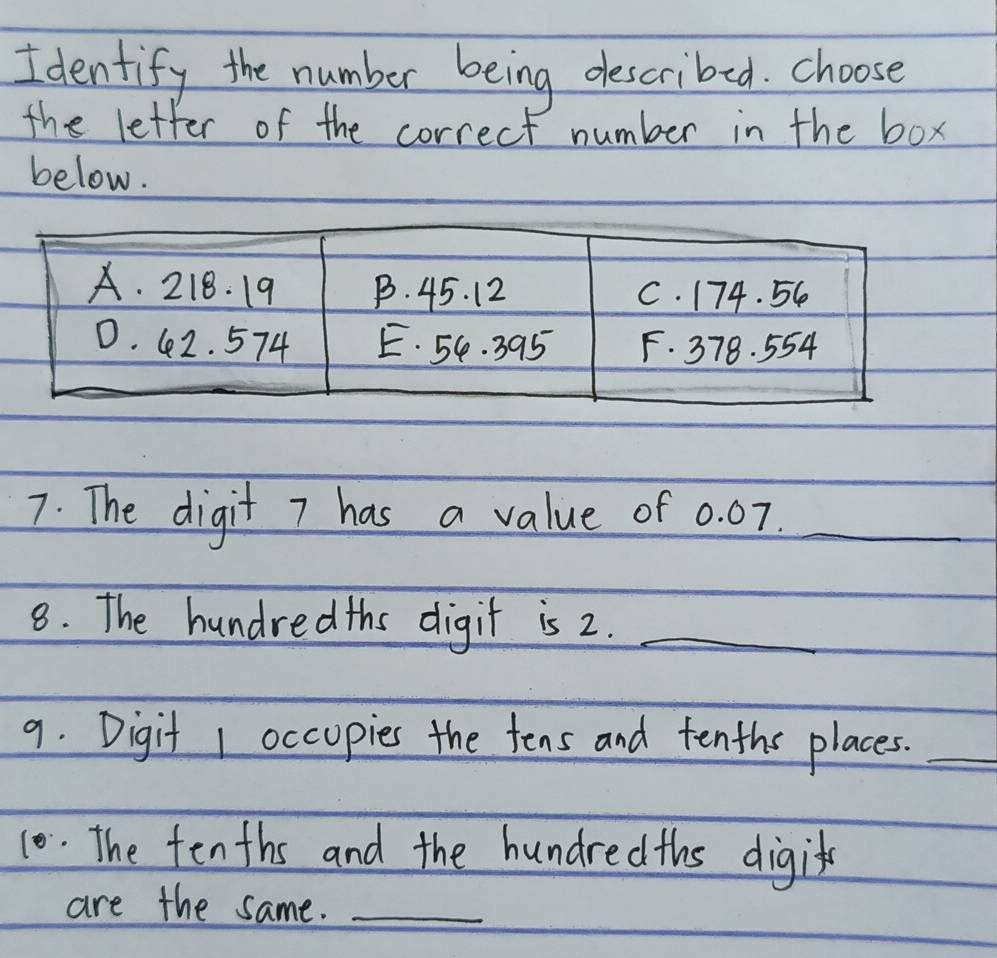 Identify the number being described. Choose
the letter of the correct number in the box
below.
A. 218.19 B. 45.12 C. 174.56
D. 62.574 E. 56.395 F. 378.554
7. The digit 7 has a value of 0.07. ______
8. The hundredths digit is 2. ______
9. Digit 1 occupies the tens and tenths places. ___
10. The tenths and the hundredths digits
are the same. ______